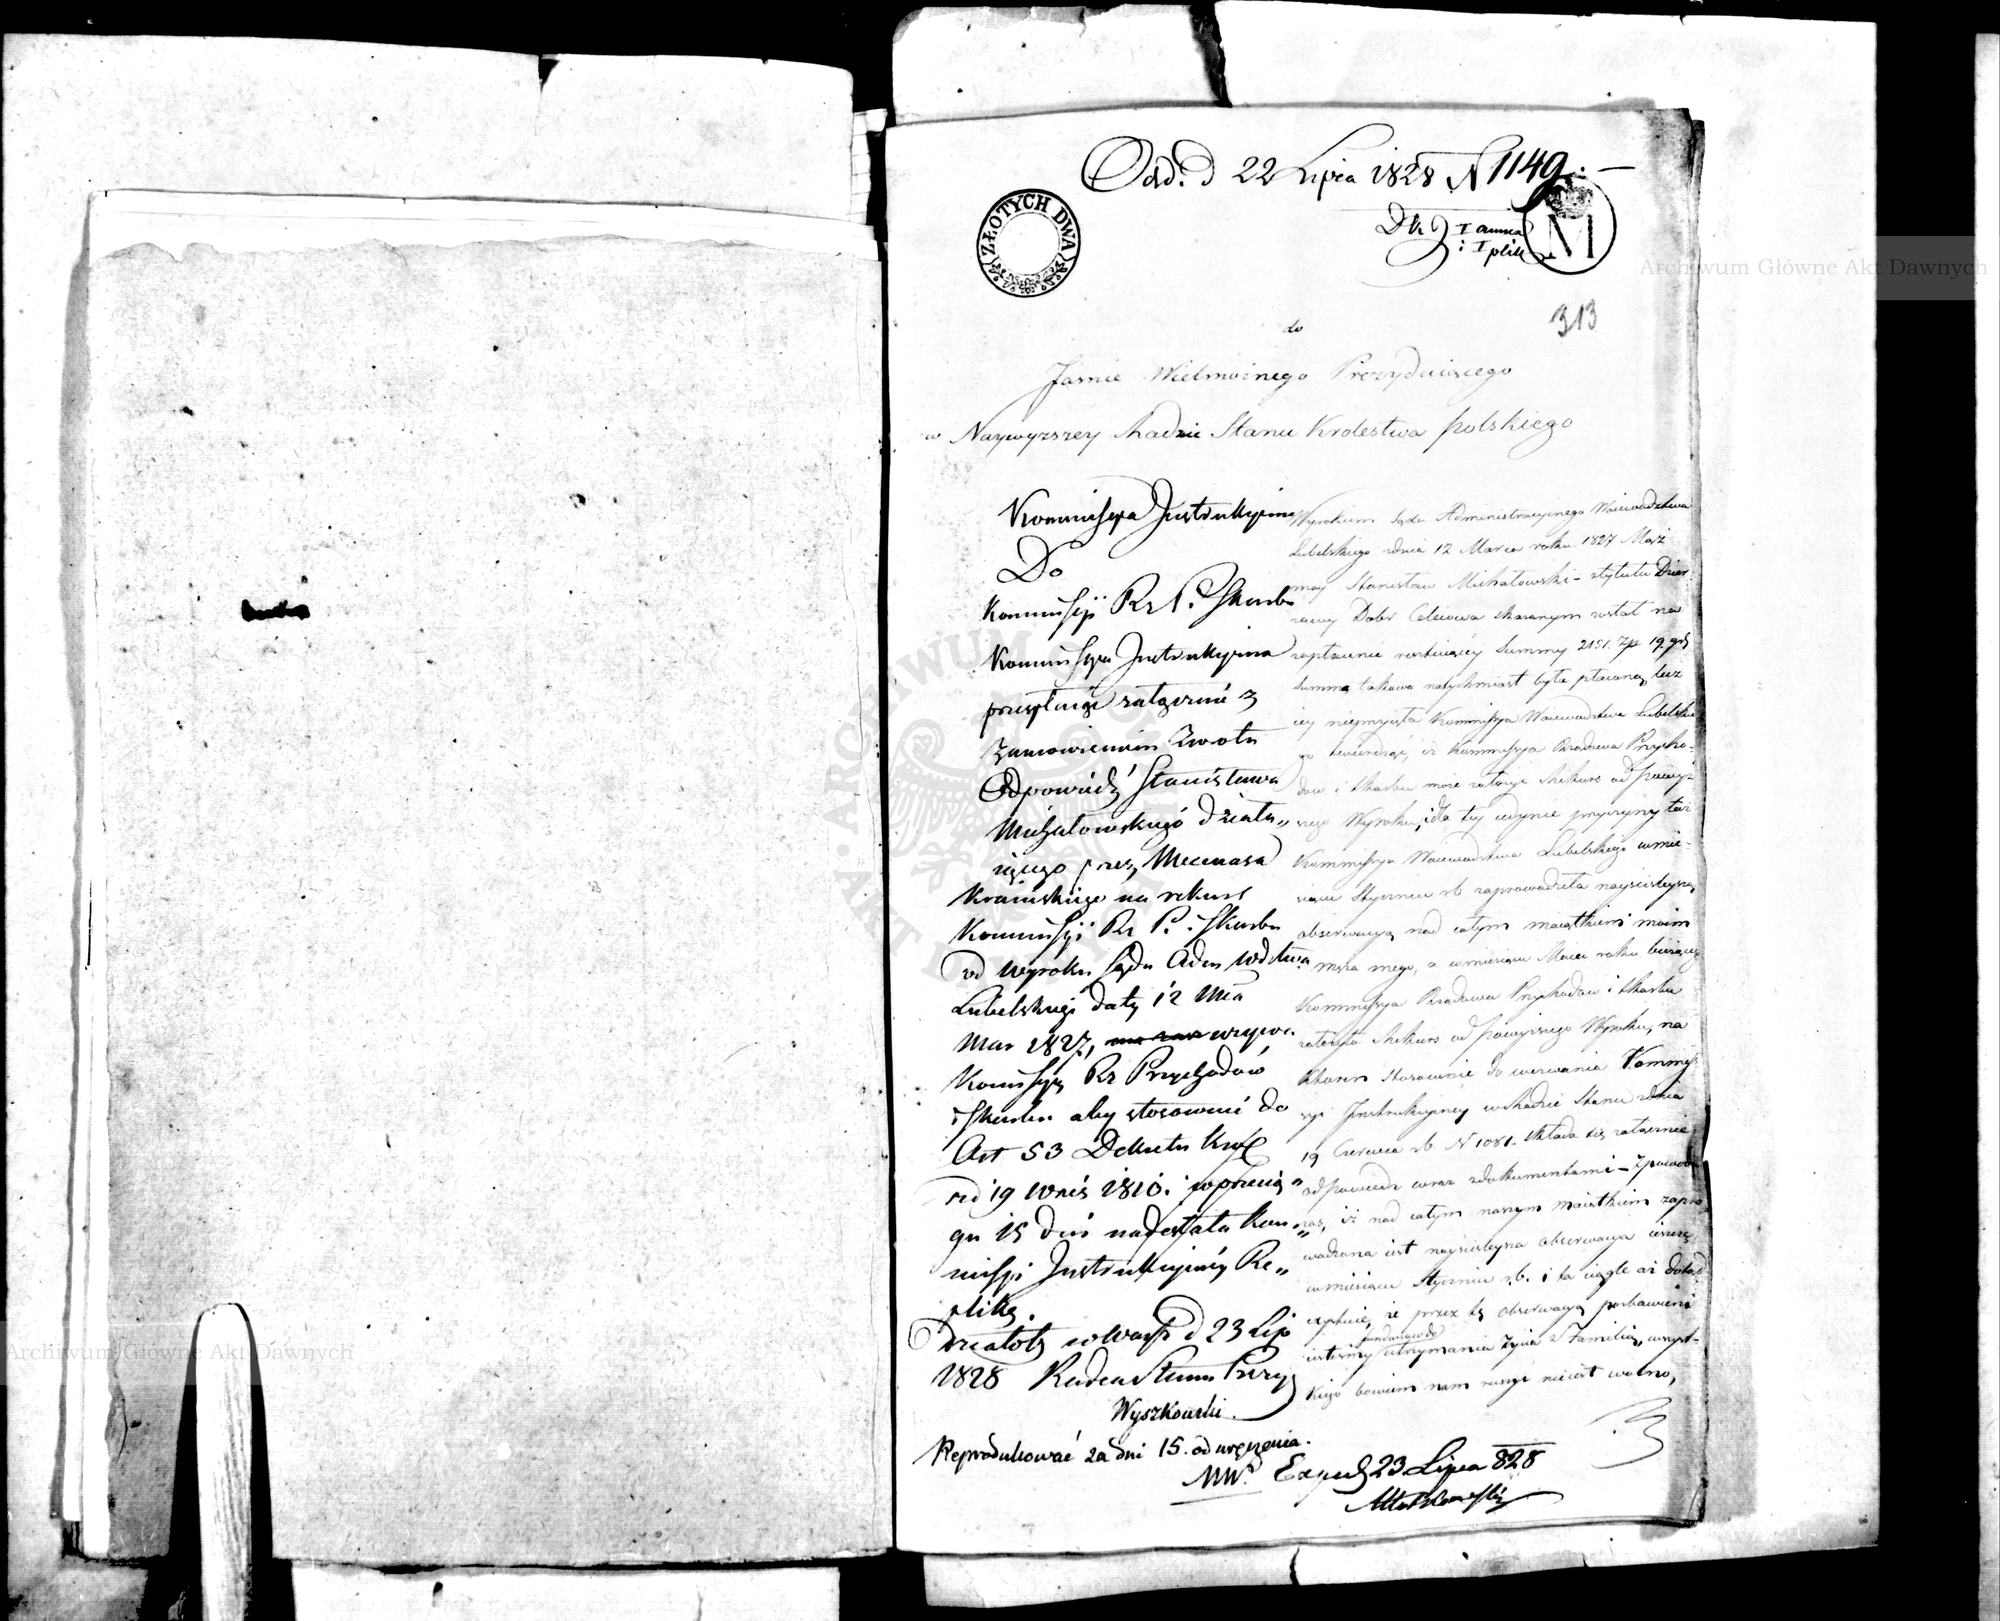 Odd. d 22 Lipca 1828 N 1149.
ZŁOTYCH DWA
M
i 1 plik
313
do
Jaśnie Wielmożnego Prezyduiącego
w Naywyzszey Radzie Stanu Krolestwa polskiego
Kommissya Instrukcyina
Do
Kommissyi Rz P. i Skarbu
Kommissya Instrukcyina
przesyłaiąc załącznie z
zamowieniem Zwrotu
Odpowiedź Stanisława
Michałowskiego działa„
iącego przez Mecenasa
Kraińskiego na rekurs
Kommissyi Rz P. i Skarbu
od wyroku Sądu Adm Wdztwa
Lubelskiego daty 12 Mca
Mar 1827, wzywa
Komissyą Rz Przychodów
i Skarbu aby stosownie do
Art 53 Dekretu Kró
z d 19 Wrześ 1810. w przecią„
gu 15 dni nadesłała Kom„
missyi Instrukcyiney Re„
plikę.
Działo w Warsz d 23 Lip
1828 Radca Stanu Prezy
Wyszkowski.
Reprodukować za dni 15. od wręczenia.
Exped 23 Lipca 828
Wyrokiem Sądu Administracyinego Woiewodztwa
Lubelskiego z dnia 12 Marca roku 1827 Mąż
moy Stanisław Michałowski – z tytułu Dzier
zawy Dobr Celeiowa skazanym został na
zapłacenie resztuiącey Summy 2151. Zp 19. gr
Summa takowa natychmiast była płacona, lecz
iey nieprzyięła Kommissya Woiewodztwa Lubelskie
go twierdząc, iż Kommissya Rządowa Przycho-
dow i Skarbu może założyć Rekurs od powyż
szego Wyroku, i dla tey iedynie przyczyny taż
Kommissya Woiewodztwa Lubelskiego w mie-
siącu Styczniu r b zaprowadziła nayściśleyszą
obserwacyą nad całym maiątkiem moim
i męża mego, a w miesiącu Maiu roku bieżącego
Kommissya Rządowa Przychodow i Skarbu
założyła Rekurs od powyższego Wyroku, na
ktoren stosownie do wezwania Kommis
syi Instrukcyiney w Radzie Stanu z dnia
19 Czerwca r b N 1081. składa się załącznie
odpowiedź wraz z dokumentami – z powodu
zaś, iż nad całym naszym maiątkiem zapro
wadzona iest nayściśleysza obserwacya ieszcze
w miesiącu Styczniu r. b. i ta ciągle aż dotąd
że przez tę obserwacyą pozbawieni
funduszu do
iesteśmy utrzymania życia z Familią, wszyst-
kiego bowiem nam ruszyć nie iest wolno,
Archiwum Główne Akt Dawnych
Archiwum Główne Akt Dawnych